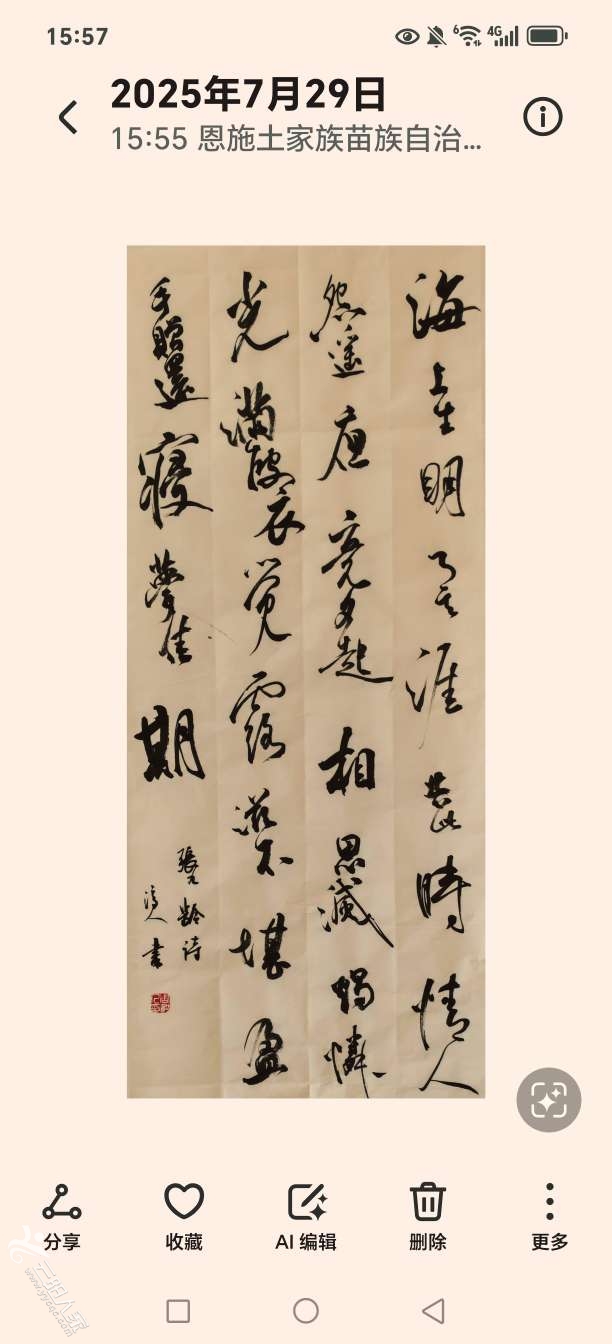 15:57
6
4G
2025年7月29日
15:55 恩施土家族苗族自治…
海上生明月天涯共此時情人
怨遥夜竟夕起相思滅燭憐
光滿披衣覺露滋不堪盈
手贈還寢夢佳期
張九齡詩
人書
分享
收藏
AI 编辑
删除
更多